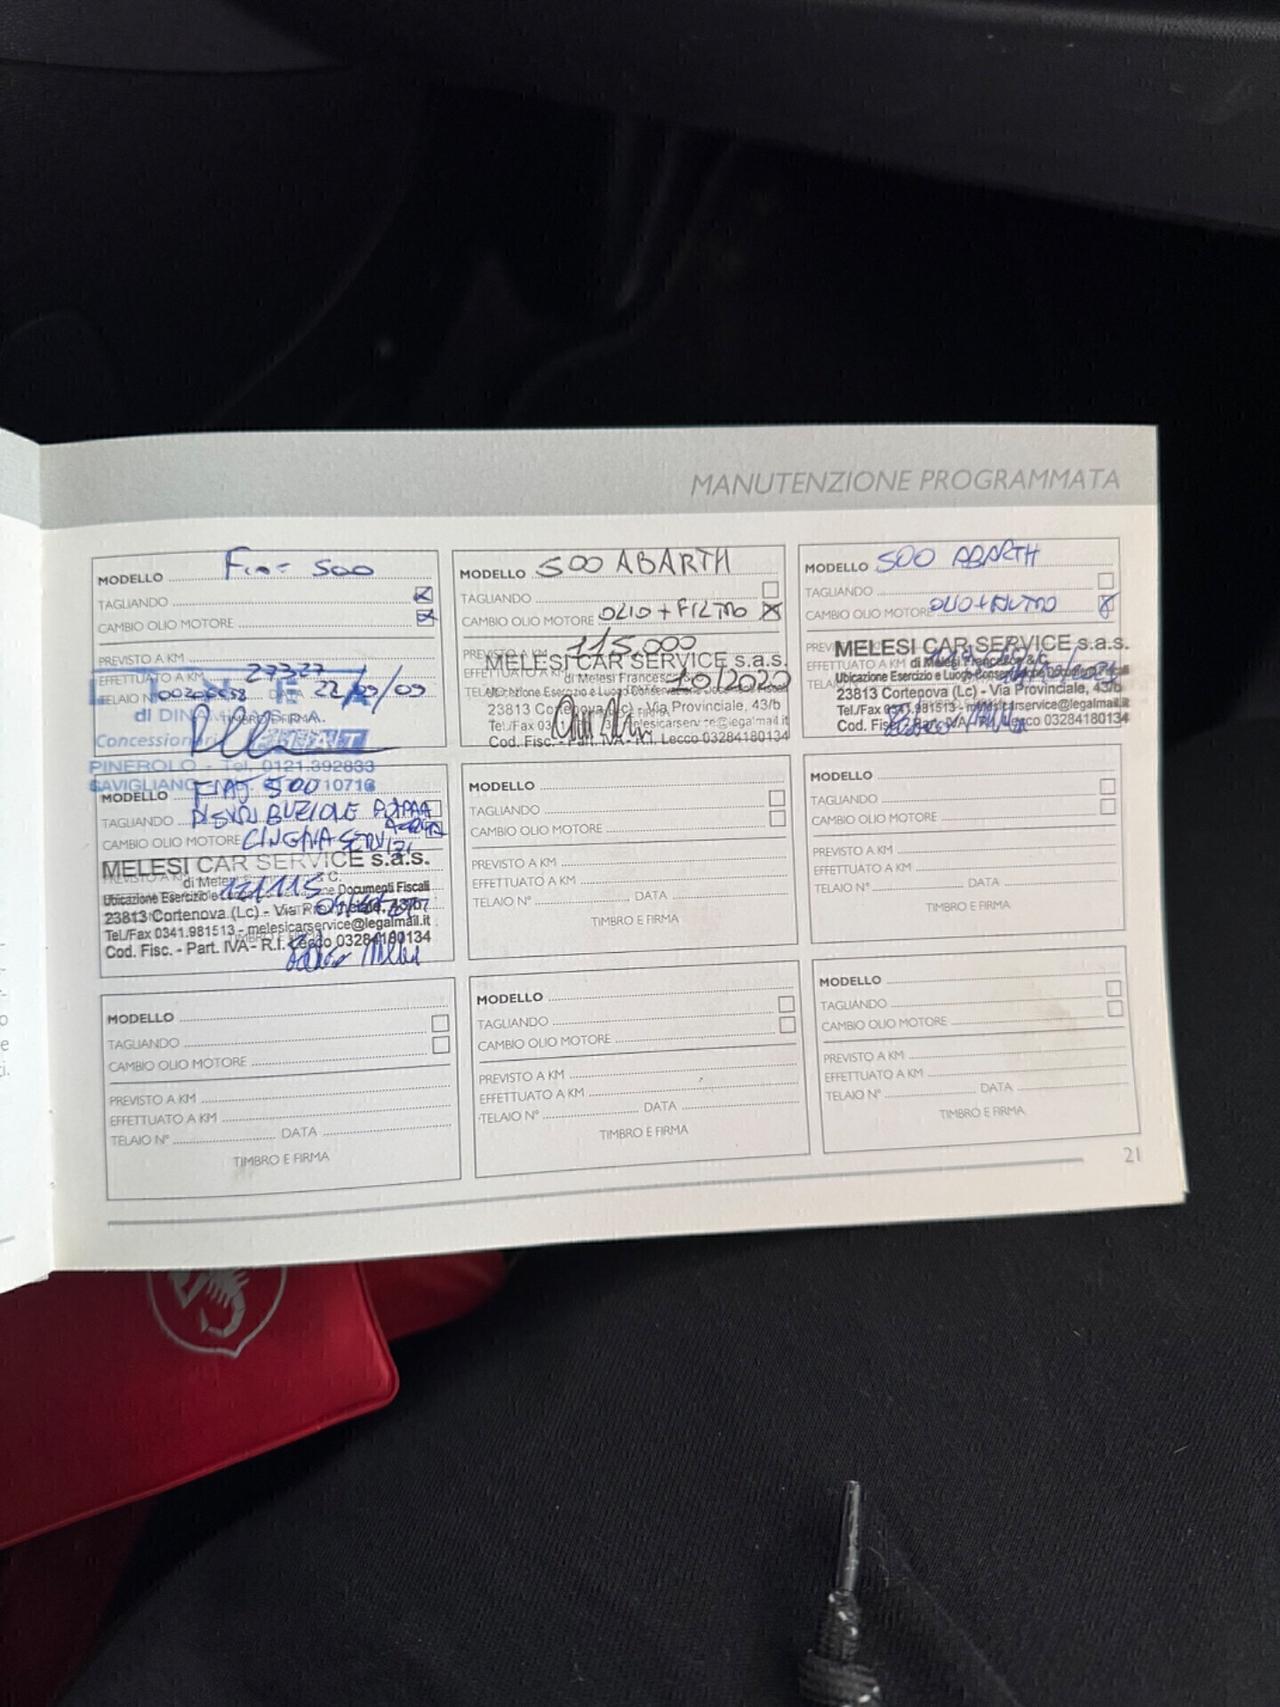 MANUTENZIONE PROGRAMMATA
MODELLO Fiat 500
TAGLIANDO
CAMBIO OLIO MOTORE
PREVISTO A KM
EFFETTUATO A KM 27327
TELAIO N° DATA 22/09/09
TIMBRO E FIRMA
di DINA
Concessionari FIAT
PINEROLO - Tel. 0121.392833
SAVIGLIANO 10716
MODELLO 500 ABARTH
TAGLIANDO
CAMBIO OLIO MOTORE OLIO + FILTRO
PREVISTO A KM 115.000
MELESI CAR SERVICE s.a.s.
EFFETTUATO A KM di Melesi Francesc
10/2020
Ubicazione Esercizio e Luogo Conservazione Documenti Fiscali
23813 Cortenova (Lc) - Via Provinciale, 43/b
Tel./Fax 03 melesicarservice@legalmail.it
Cod. Fisc. - Part. IVA - R.I. Lecco 03284180134
MODELLO 500 ABARTH
TAGLIANDO
CAMBIO OLIO MOTORE OLIO + FILTRO
MELESI CAR SERVICE s.a.s.
EFFETTUATO A KM di Melesi Francesco & C.
Ubicazione Esercizio e Luogo Conservazione Documenti Fiscali
23813 Cortenova (Lc) - Via Provinciale, 43/b
Tel./Fax 0341.981513 - melesicarservice@legalmail.it
Cod. Fisc. - Part. IVA - R.I. Lecco 03284180134
MODELLO FIAT 500
TAGLIANDO DISTRIBUZIONE POMPA
ACQUA
CAMBIO OLIO MOTORE CINGHIA SERVIZI
MELESI CAR SERVICE s.a.s.
di Melesi & C.
121115
Ubicazione Esercizio e Luogo Conservazione Documenti Fiscali
23813 Cortenova (Lc) - Via Provinciale, 43/b
Tel./Fax 0341.981513 - melesicarservice@legalmail.it
Cod. Fisc. - Part. IVA - R.I. Lecco 03284180134
MODELLO
TAGLIANDO
CAMBIO OLIO MOTORE
PREVISTO A KM
EFFETTUATO A KM
TELAIO N° DATA
TIMBRO E FIRMA
MODELLO
TAGLIANDO
CAMBIO OLIO MOTORE
PREVISTO A KM
EFFETTUATO A KM
TELAIO N° DATA
TIMBRO E FIRMA
MODELLO
TAGLIANDO
CAMBIO OLIO MOTORE
PREVISTO A KM
EFFETTUATO A KM
TELAIO N° DATA
TIMBRO E FIRMA
MODELLO
TAGLIANDO
CAMBIO OLIO MOTORE
PREVISTO A KM
EFFETTUATO A KM
TELAIO N° DATA
TIMBRO E FIRMA
MODELLO
TAGLIANDO
CAMBIO OLIO MOTORE
PREVISTO A KM
EFFETTUATO A KM
TELAIO N° DATA
TIMBRO E FIRMA
21